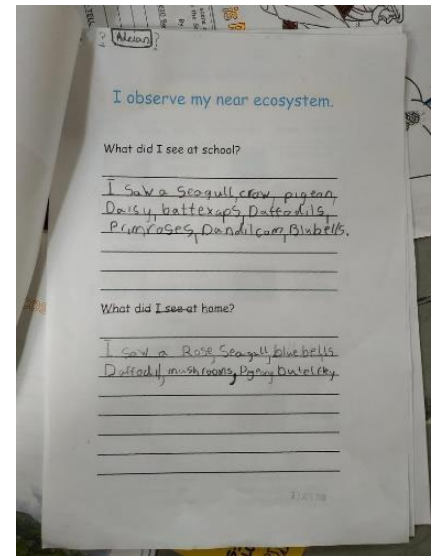 Adrian
I observe my near ecosystem.
What did I see at school?
I Saw a Seagull, crow, pigeon,
Daisy, battexaps, Daffodils,
Primroses, Dandilcom, Blubells.
What did I see at home?
I saw a Rose, Seagull, bluebells
Daffodil, mushrooms, Pigeny butelfky